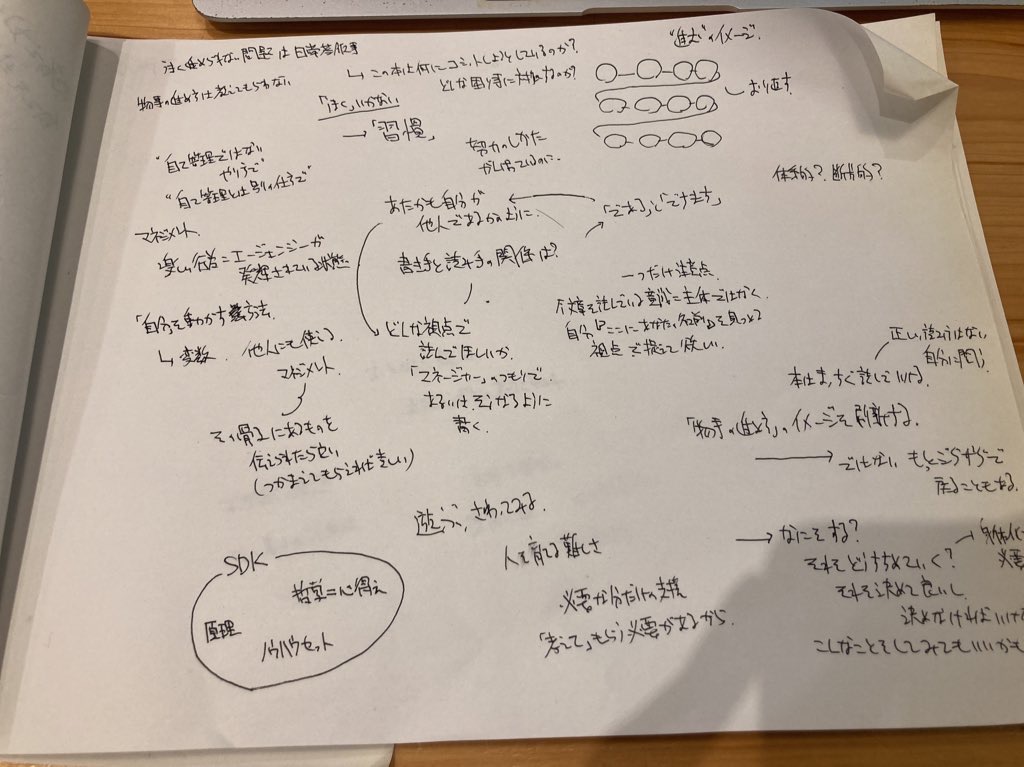 うまく進められない問題は日常茶飯事
物事の進め方は教えてもらえない
↳この本は何にコミットしようとしているのか?
どんな困り事に対処するのか?
「うまく」いかない
→「習慣」
努力のしかた
"進む"のイメージ
おり返す
体系的?、断片的?
"自己管理ではない
やり方で"
"自己管理とは別の仕方で"
マネジメント
楽しい行為=エージェンシーが
発揮されている状態
あたかも自分が
他人であるかのように
「である」と「できます」
書き手と読み手の関係は?
「自分を動かす方法」
↳変数
他人にも使える
マネジメント
その骨子にあるものを
伝えられたら良い
(つかまえてもらえれば嬉しい)
どんな視点で
読んでほしいか
「マネージャー」のつもりで
あるいは、そうなるように
書く
一つだけ注意点
文章を読んでいる意識=主体ではなく
自分『ここにあなたの名前』を見つめる
視点で捉えて欲しい
正しい読み方はない
自分に問う
本はまっすぐ読んでいける
「物事の進め方」のイメージを刷新する
ではない もっとごちゃごちゃで
戻ることもある
遊ぶ、さわってみる
人を育てる難しさ
必要な分だけの支援
「考えて」もらう必要があるから
→なにをする?
それをどう進めていく?
それを決めて良いし、
決めなければいけ
こんなことをしてみてもいいかも
身体化
必要
SDK
哲学=心得
原理
ノウハウセット